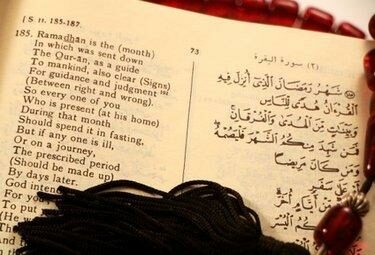 [S II. 185-187.
73
(٢) سورة البقرة
185. Ramadhān is the (month)
In which was sent down
The Qur-ān, as a guide
To mankind, also clear (Signs)
For guidance and judgment 192
(Between right and wrong).
So every one of you
Who is present (at his home)
During that month
Should spend it in fasting,
But if any one is ill,
Or on a journey,
The prescribed period
(Should be made up)
By days later.
God inten
For you
To put
(He w
The
And
شَهْرُ رَمَضَانَ الَّذِي أُنْزِلَ فِيهِ
الْقُرْآنُ هُدًى لِلنَّاسِ
وَبَيِّنَاتٍ مِنَ الْهُدَى وَالْفُرْقَانِ
فَمَنْ شَهِدَ مِنْكُمُ الشَّهْرَ فَلْيَصُمْهُ
وَمَنْ كَانَ مَرِيضًا
أَوْ عَلَى سَفَرٍ
مِنْ أَيَّامٍ أُخَرَ
بِكُمُ الْيُسْرَ